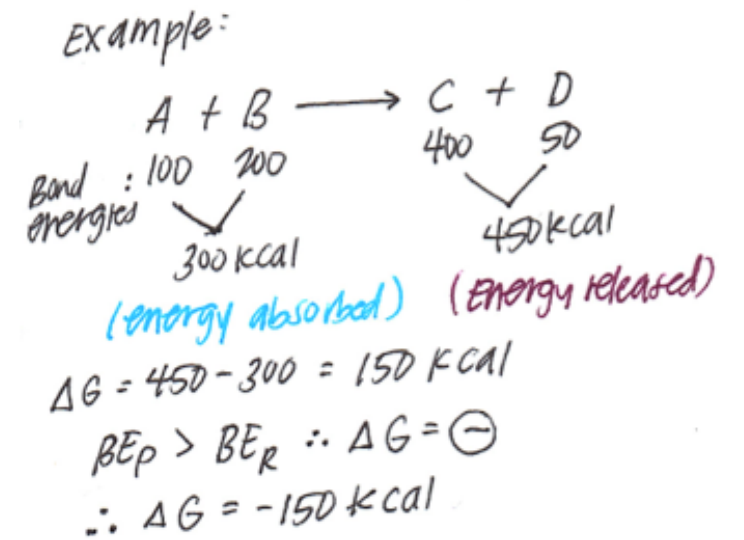 Example:
A + B ⟶ C + D
Bond energies : 100 200 400 50
300 kcal 450 kcal
(energy absorbed) (energy released)
ΔG = 450 - 300 = 150 kcal
BEP > BER ∴ ΔG = ⊖
∴ ΔG = -150 kcal